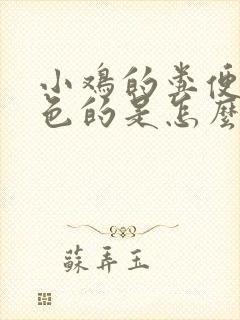 小鸡的粪便
色的是怎麼
蘇弄玉